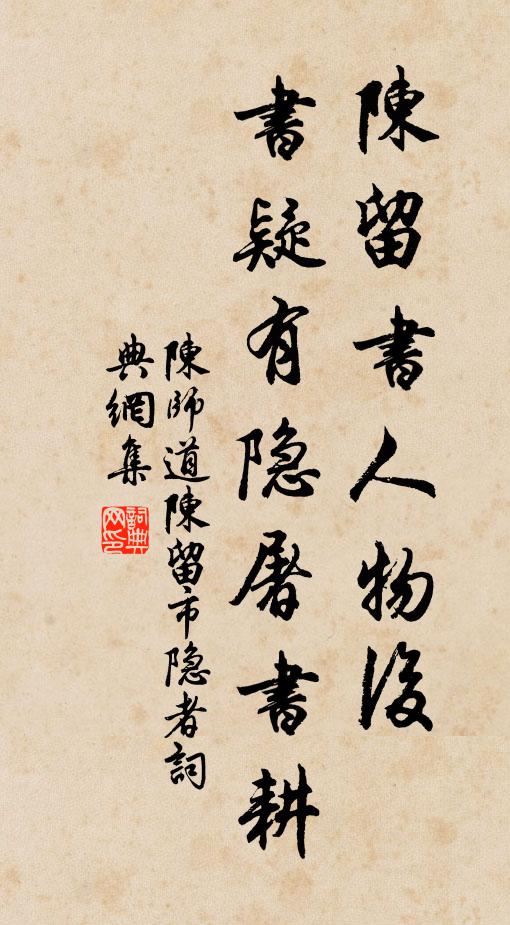 陳留書人物後
書疑有隐屠書耕
陳師道陳留市隐者詞
典網集
詞典
网印